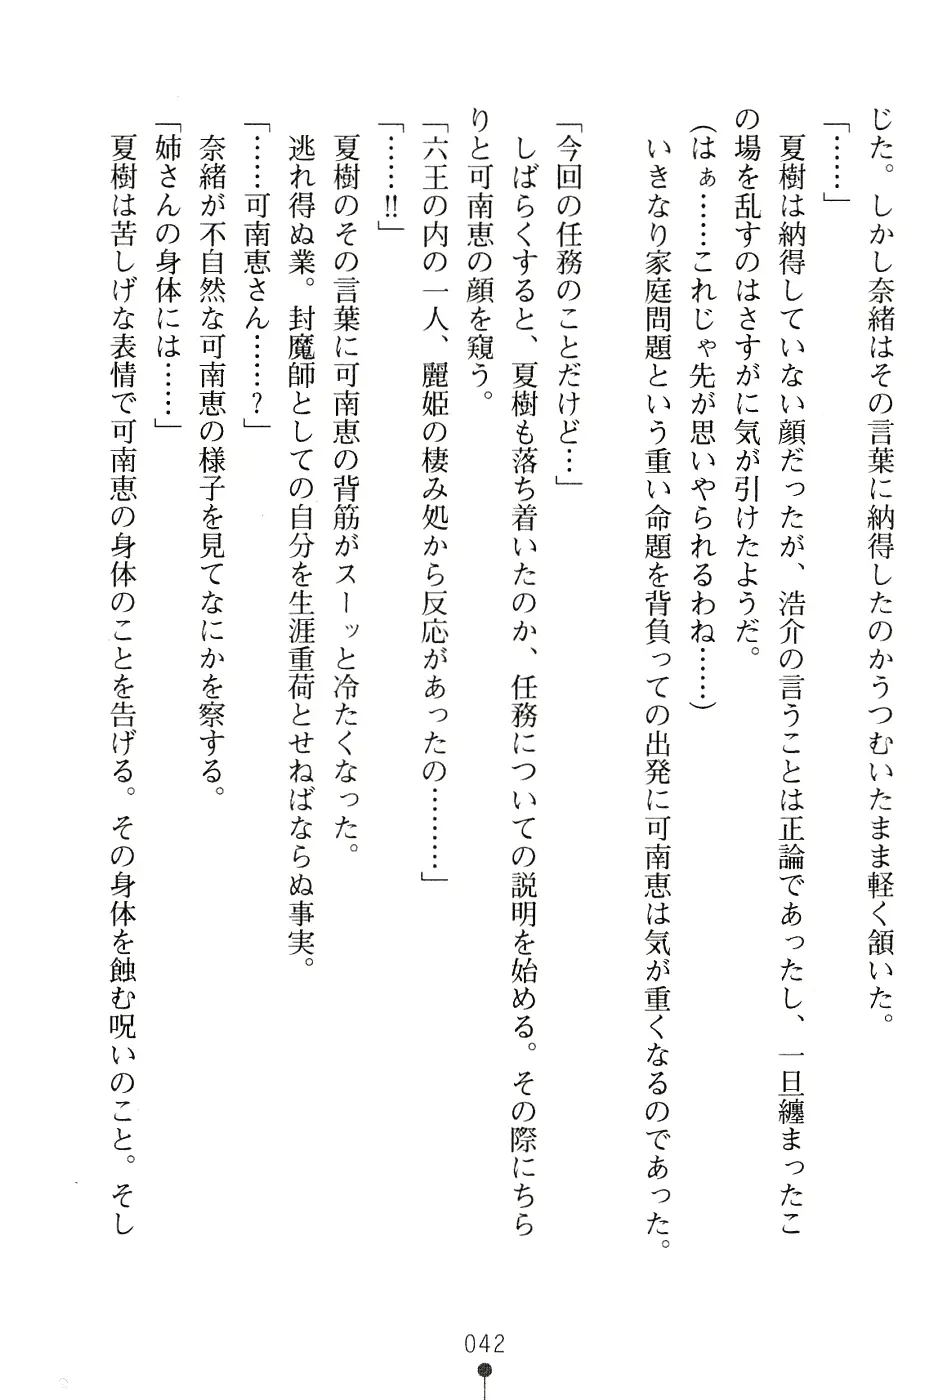 じた。しかし奈緒はその言葉に納得したのかうつむいたまま軽く頷いた。
「……」
夏樹は納得していない顔だったが、浩介の言うことは正論であったし、一旦纏まったこ
の場を乱すのはさすがに気が引けたようだ。
(はぁ……これじゃ先が思いやられるわね……)
いきなり家庭問題という重い命題を背負っての出発に可南恵は気が重くなるのであった。
「今回の任務のことだけど…」
しばらくすると、夏樹も落ち着いたのか、任務についての説明を始める。その際にちら
りと可南恵の顔を窺う。
「六王の内の一人、麗姫の棲み処から反応があったの………」
「……!!」
夏樹のその言葉に可南恵の背筋がスーッと冷たくなった。
逃れ得ぬ業。封魔師としての自分を生涯重荷とせねばならぬ事実。
「……可南恵さん……?」
奈緒が不自然な可南恵の様子を見てなにかを察する。
「姉さんの身体には……」
夏樹は苦しげな表情で可南恵の身体のことを告げる。その身体を蝕む呪いのこと。そし
042